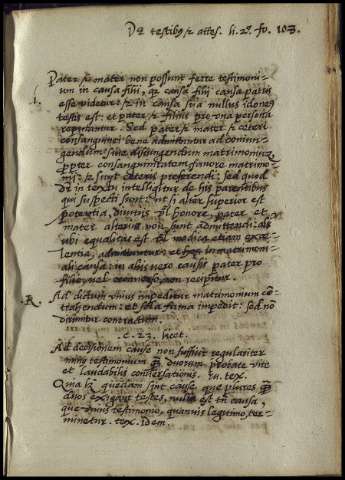 De testibus et attes. li. 2º. fo. 103.
Pater et mater non possunt ferre testimoni-
um in causa filii, qz causa filii causa patris
1. esse videtur: et in causa sua nullus idoneus
testis est: et pater et filius pro una persona
reputantur. Sed pater et mater et ceteri
consanguinei bene admittuntur ad coniun-
gendum sive disiungendum matrimonium
propter consanguinitatem favore matrimo-
nii: et sunt ceteris preferendi: sed quod
dr in textu intelligitur de his parentibus
qui suspecti sunt: ut si alter superior est
potentia, divitiis vl honore, pater et
mater alterius non sunt admittendi: als
ubi equalitas est vl modica etiam exce-
lentia, admittuntur: et hoc in matrimoni-
ali causa: in aliis vero causis pater pro
filio, vel econverso, non recipitur.
R. Ad dictum unius impeditur matrimonium con-
trahendum: et sola fama impedit: sed non
dirimitur contractum.
c. 23. licet.
Ad decisionem cause non sufficit regulariter
testimonium duorum probate vite
et laudabilis conversationis. in. tex.
quedam sint cause que plures qm
duos exigant testes, nulla est tn causa,
que unius testimonio, quamvis legitimo, ter-
minetur. tex. Idem